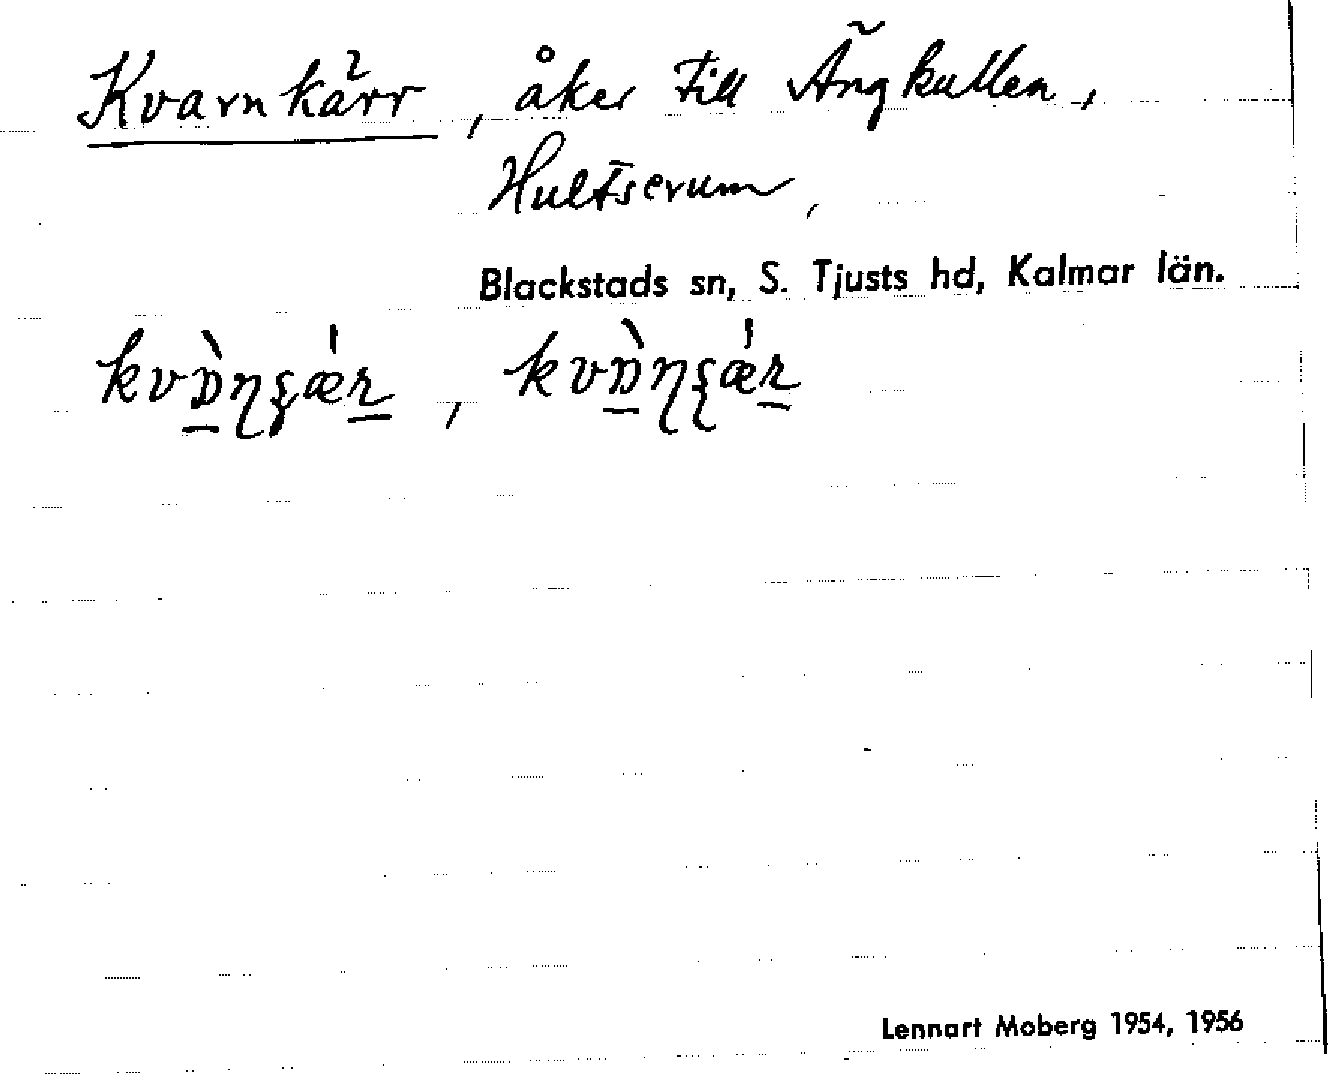 Kvarnkärr, åker till Ängkullen,
Hultserum,
Blackstads sn, S. Tjusts hd, Kalmar län.
Lennart Moberg 1954, 1956